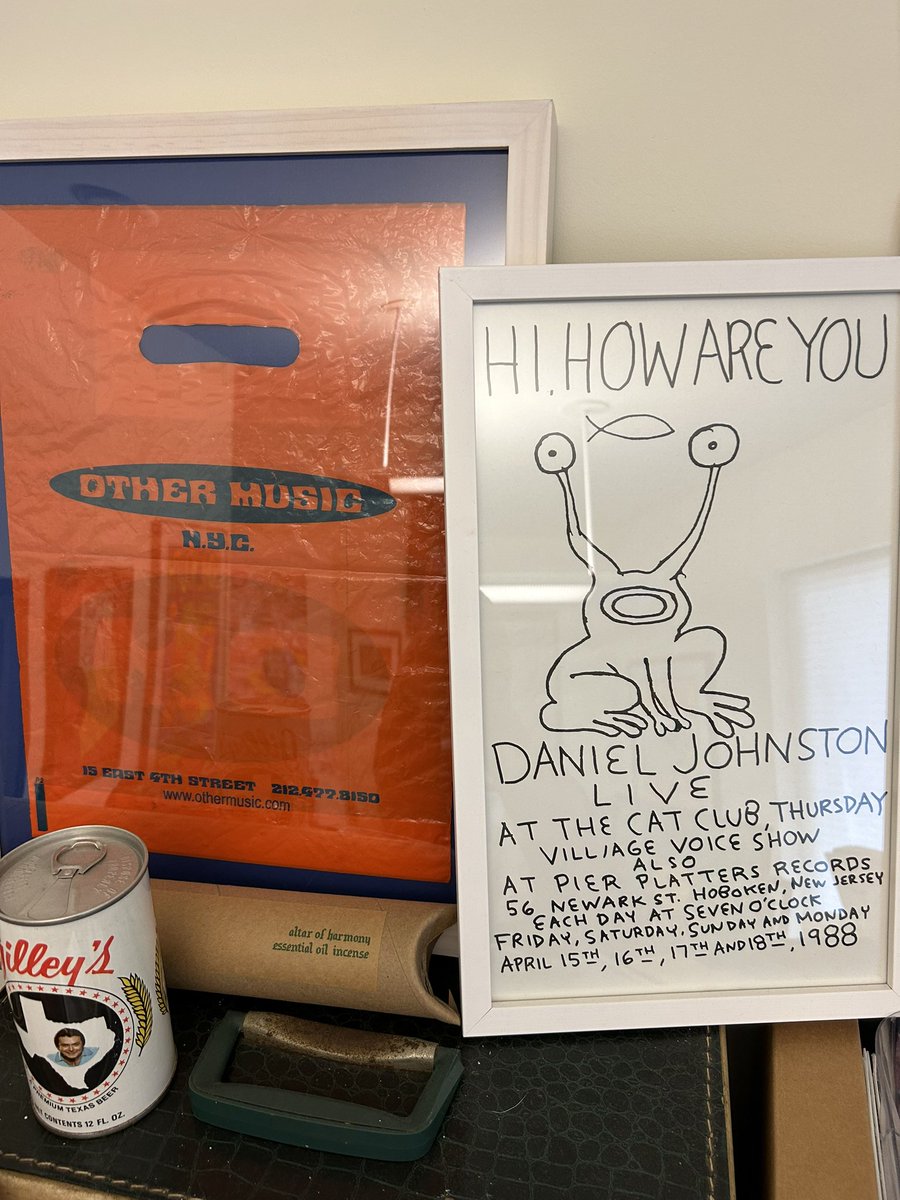 OTHER MUSIC
N.Y.C.
15 EAST 4TH STREET 212.477.8150
www.othermusic.com
HI, HOW ARE YOU
DANIEL JOHNSTON
LIVE
AT THE CAT CLUB, THURSDAY
VILL/AGE VOICE SHOW
ALSO
AT PIER PLATTERS RECORDS
56 NEWARK ST. HOBOKEN, NEW JERSEY
EACH DAY AT SEVEN O'CLOCK
FRIDAY, SATURDAY, SUNDAY AND MONDAY
APRIL 15TH, 16TH, 17TH AND 18TH, 1988
altar of harmony
essential oil incense
illey's
PREMIUM TEXAS BEER
CONTENTS 12 FL. OZ.